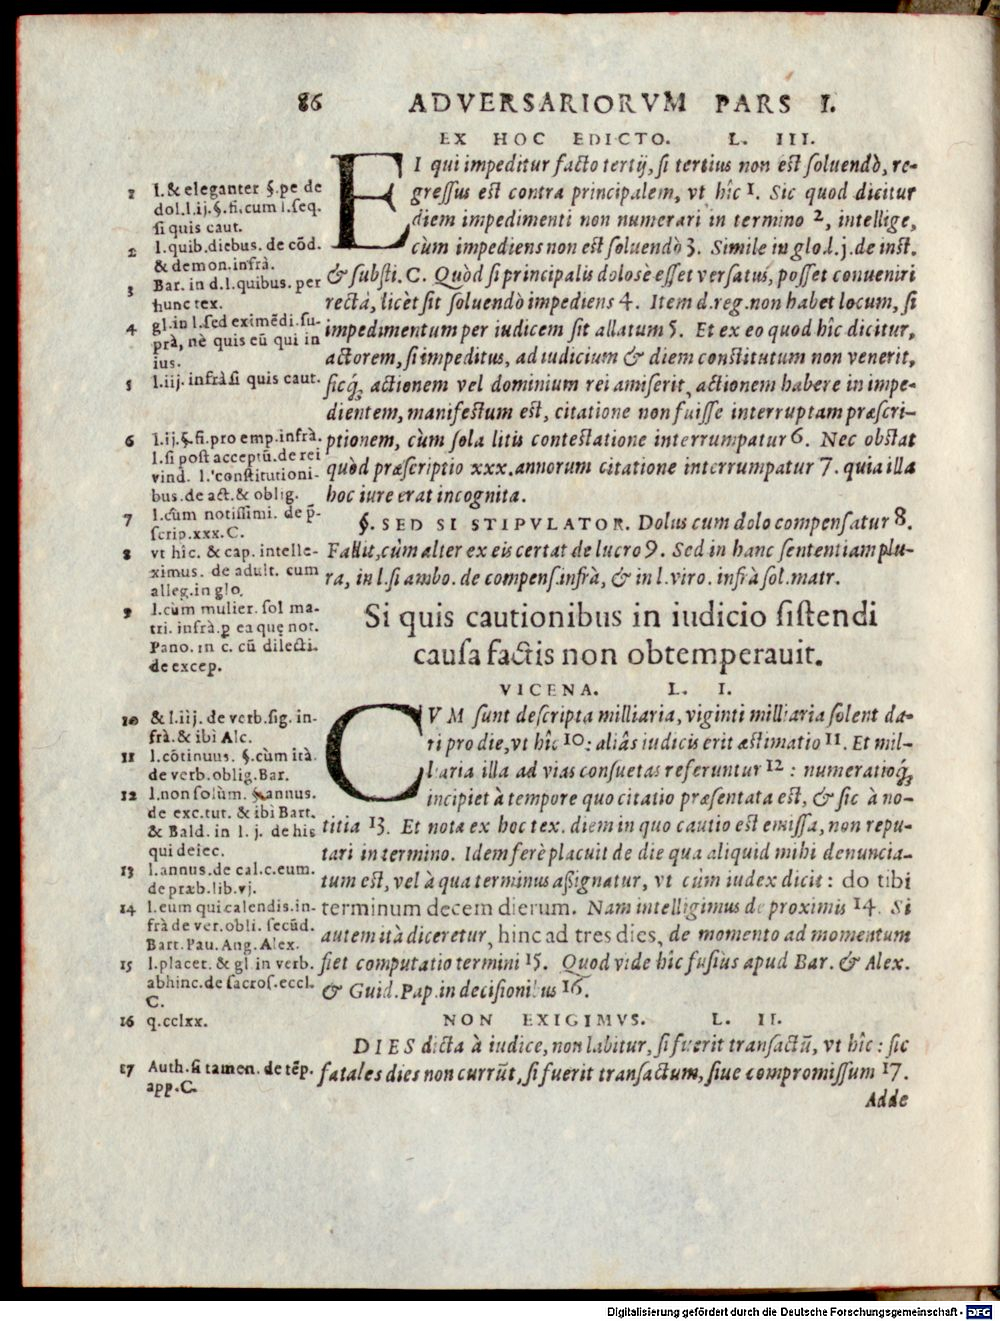 86 ADVERSARIORVM PARS I.
EX HOC EDICTO. L. III.
EI qui impeditur facto tertij, si tertius non est soluendò, re-
gressus est contra principalem, vt hîc 1. Sic quod dicitur
diem impedimenti non numerari in termino 2, intellige,
cùm impediens non est soluendò 3. Simile in glo.l.j.de inst.
& substi.C. Quòd si principalis dolosè esset versatus, posset conueniri
rectà, licèt sit soluendò impediens 4. Item d.reg.non habet locum, si
impedimentum per iudicem sit allatum 5. Et ex eo quod hîc dicitur,
actorem, si impeditus, ad iudicium & diem constitutum non venerit,
sicq́; actionem vel dominium rei amiserit, actionem habere in impe-
dientem, manifestum est, citatione non fuisse interruptam præscri-
ptionem, cùm sola litis contestatione interrumpatur 6. Nec obstat
quòd præscriptio xxx.annorum citatione interrumpatur 7. quia illa
hoc iure erat incognita.
§. SED SI STIPVLATOR. Dolus cum dolo compensatur 8.
Fallit, cùm alter ex eis certat de lucro 9. Sed in hanc sententiam plu-
ra, in l.si ambo. de compens.infrà, & in l.viro. infrà sol.matr.
Si quis cautionibus in iudicio sistendi
causa factis non obtemperauit.
VICENA. L. I.
CVM sunt descripta milliaria, viginti milliaria solent da-
ri pro die, vt hîc 10: aliâs iudicis erit æstimatio 11. Et mil-
liaria illa ad vias consuetas referuntur 12: numeratioq́;
incipiet à tempore quo citatio præsentata est, & sic à no-
titia 13. Et nota ex hoc tex. diem in quo cautio est emissa, non repu-
tari in termino. Idem ferè placuit de die qua aliquid mihi denuncia-
tum est, vel à qua terminus assignatur, vt cùm iudex dicit: do tibi
terminum decem dierum. Nam intelligimus de proximis 14. Si
autem ità diceretur, hinc ad tres dies, de momento ad momentum
fiet computatio termini 15. Quod vide hîc fusius apud Bar. & Alex.
& Guid.Pap.in decisionibus 16.
NON EXIGIMVS. L. II.
DIES dicta à iudice, non labitur, si fuerit transactũ, vt hîc: sic
fatales dies non currũt, si fuerit transactum, siue compromissum 17.
Adde
l. & eleganter §.pe de
dol.l.ij.§.fi.cum l.seq.
si quis caut.
2 l.quib.diebus. de cõd.
& demon.infrà.
3 Bar. in d.l.quibus. per
hunc tex.
4 gl.in l.sed eximẽdi.su-
prà, nè quis eũ qui in
ius.
5 l.iij. infrà si quis caut.
6 l.ij.§.fi.pro emp.infrà.
l.si post acceptũ.de rei
vind. l. constitutioni-
bus.de act.& oblig.
7 l.cùm notissimi. de p̃-
scrip.xxx.C.
8 vt hîc. & cap. intelle-
ximus. de adult. cum
alleg.in glo.
9 l.cùm mulier. sol ma-
tri. infrà.ꝑ ea quę not.
Pano. in c. cũ dilecti.
de excep.
10 & l.iij. de verb.sig. in-
frà.& ibi Alc.
11 l.cõtinuus. §.cùm ità.
de verb.oblig.Bar.
12 l.non solùm. §.annus.
de exc.tut. & ibi Bart.
& Bald. in l. j. de his
qui deiec.
13 l.annus.de cal.c.eum.
de præb.lib.vj.
14 l.eum qui calendis.in-
frà de ver.obli. secũd.
Bart. Pau. Ang. Alex.
15 l.placet. & gl.in verb.
abhinc.de sacros.eccl.
C.
16 q.cclxx.
17 Auth.si tamen. de tẽp.
app.C.
Digitalisierung gefördert durch die Deutsche Forschungsgemeinschaft - DFG